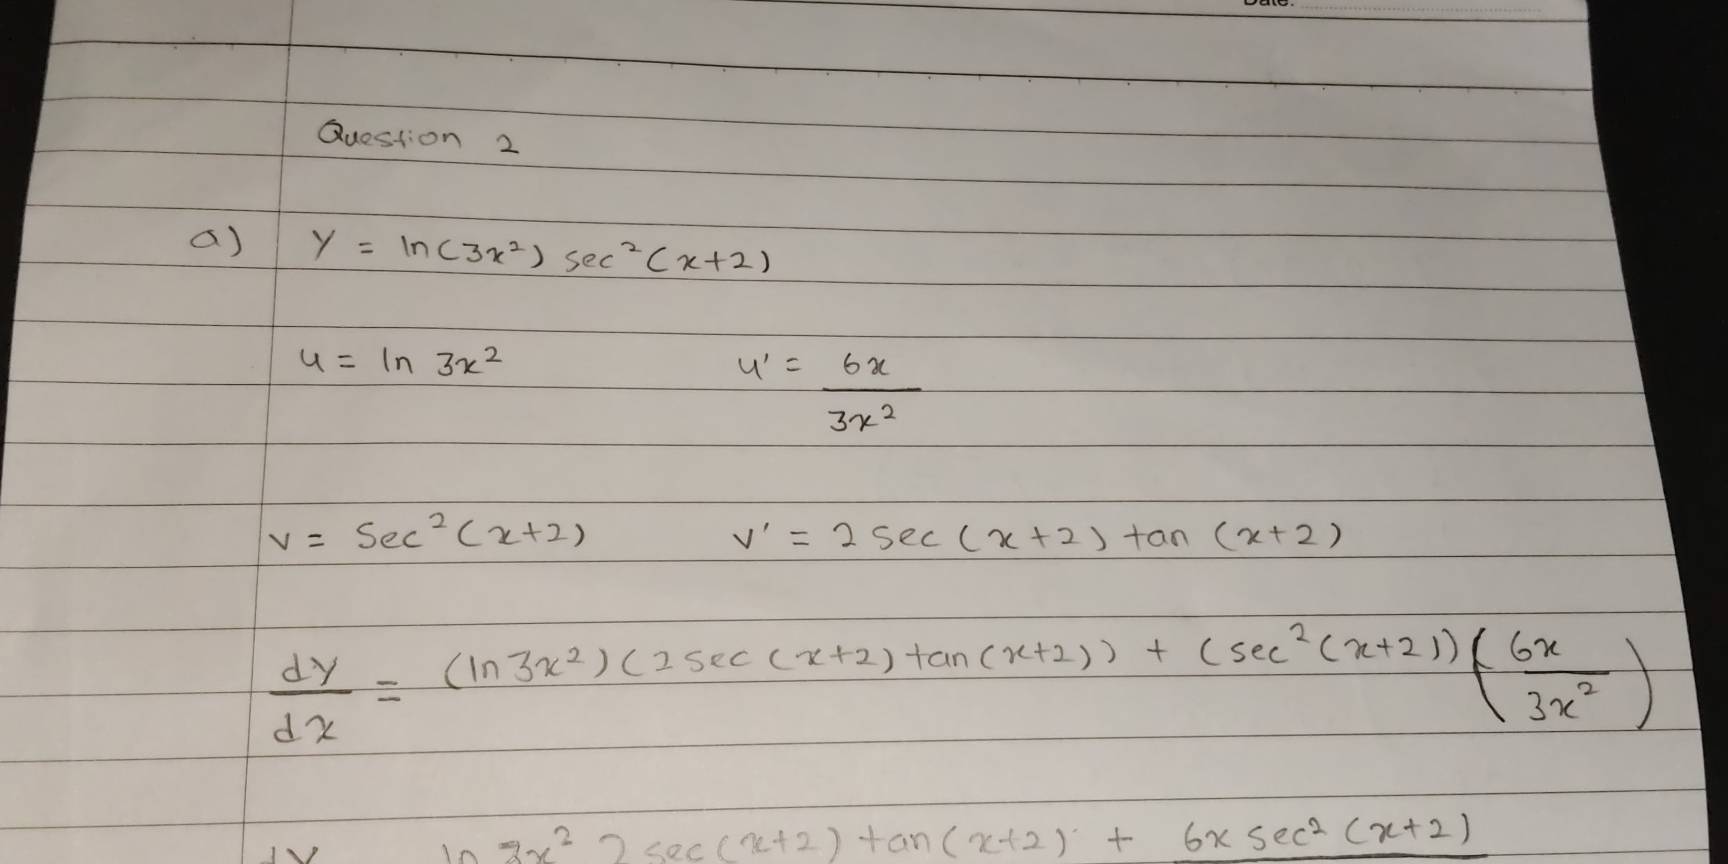 Date:
Question 2
a) y = ln(3x²) sec²(x+2)
u = ln 3x² u' = 6x / 3x²
v = sec²(x+2) v' = 2 sec (x+2) tan (x+2)
dy/dx = (ln 3x²)(2 sec (x+2) tan(x+2)) + (sec²(x+2))(6x / 3x²)
dy ln 3x² 2 sec(x+2) tan(x+2) + 6x sec² (x+2)